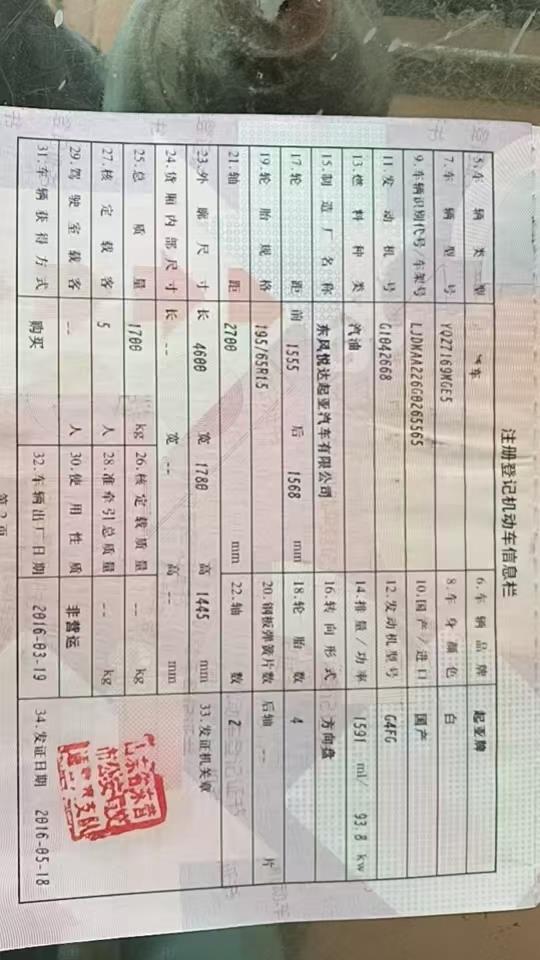 注册登记机动车信息栏
5.车辆类型 车 6.车辆品牌 起亚牌
7.车辆型号 YQZ7169MGE5 8.车身颜色 白
9.车辆识别代号/车架号 LJDMAA226G0265565 10.国产/进口 国产
11.发动机号 G1042668 12.发动机型号 G4FG
13.燃料种类 汽油 14.排量/功率 1591 ml/ 93.8 kw
15.制造厂名称 东风悦达起亚汽车有限公司 16.转向形式 方向盘
17.轮距 前 1555 后 1568 mm 18.轮胎数 4
19.轮胎规格 195/65R15 20.钢板弹簧片数 后轴 -- 片
21.轴距 2700 mm 22.轴数 2
23.外廓尺寸 长 4600 宽 1780 高 1445 mm 33.发证机关章
24.货厢内部尺寸 长 -- 宽 -- 高 -- mm
25.总质量 1700 kg 26.核定载质量 -- kg
27.核定载客 5 人 28.准牵引总质量 -- kg
29.驾驶室载客 -- 人 30.使用性质 非营运
31.车辆获得方式 购买 32.车辆出厂日期 2016-03-19 34.发证日期 2016-05-18
第2页